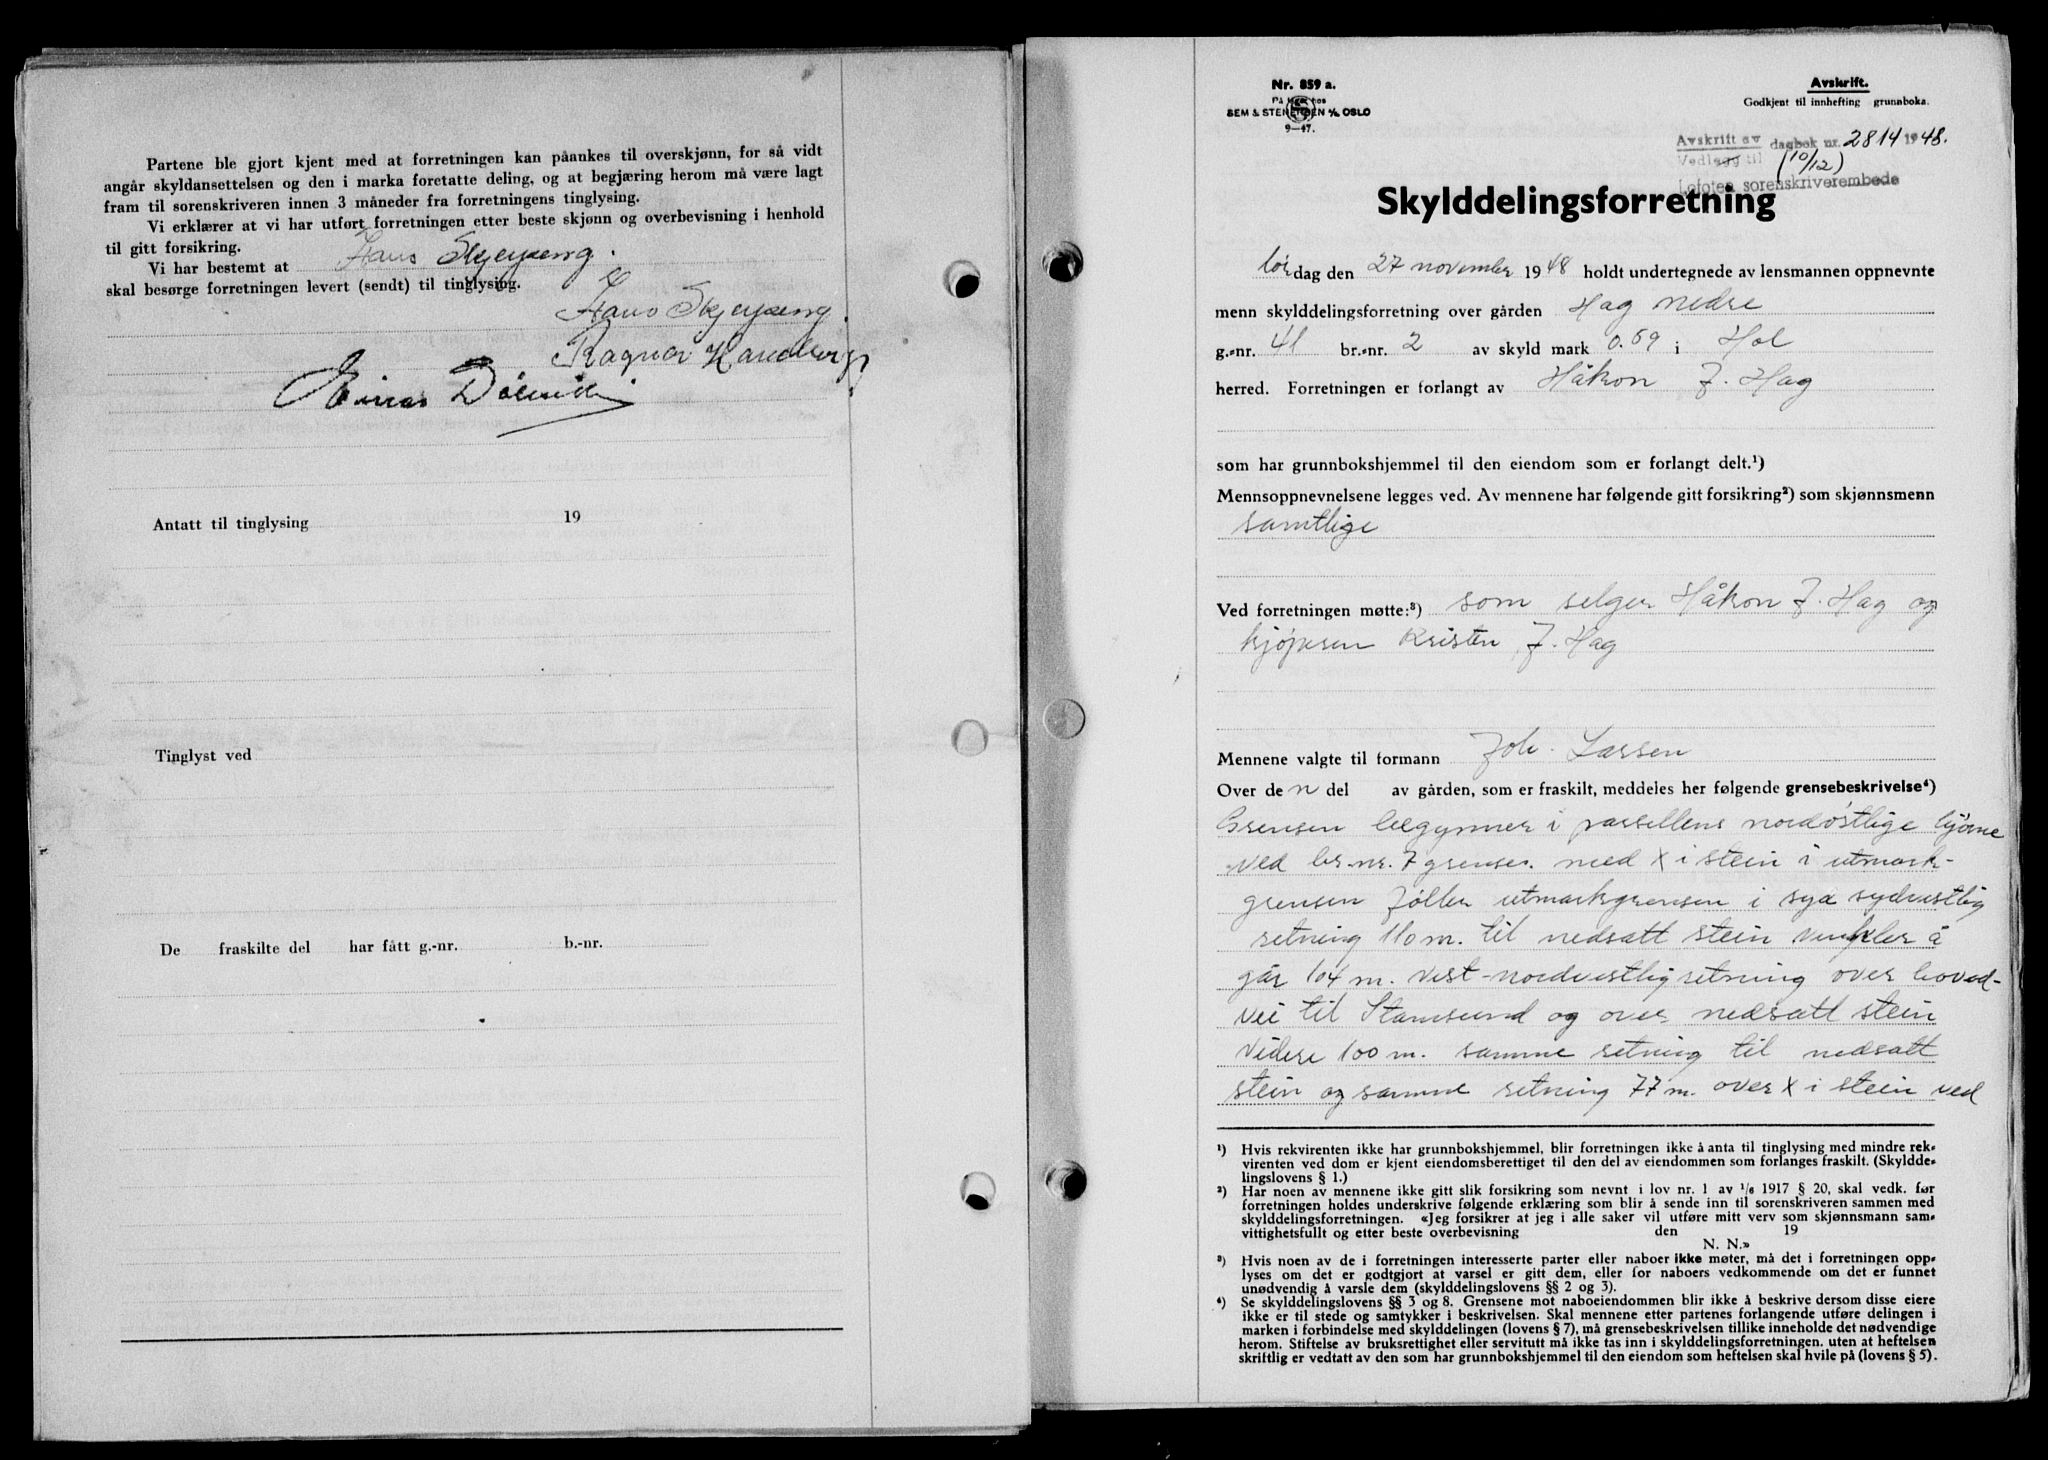 Partene ble gjort kjent med at forretningen kan påankes til overskjønn, for så vidt
angår skyldansettelsen og den i marka foretatte deling, og at begjæring herom må være lagt
fram til sorenskriveren innen 3 måneder fra forretningens tinglysing.
Vi erklærer at vi har utført forretningen etter beste skjønn og overbevisning i henhold
til gitt forsikring.
Vi har bestemt at Hans Skjeseng.
skal besørge forretningen levert (sendt) til tinglysing.
Hans Skjeseng.
Ragnar Handberg
Einar
Antatt til tinglysing 19
Tinglyst ved
De fraskilte del har fått g.-nr. b.-nr.
Nr. 859 a.
På lager hos
SEM & STENERSEN A/S OSLO
9—47.
Avskrift.
Godkjent til innhefting grunnboka.
Avskrift av
Vedlegg til dagbok nr. 2814 1948.
(10/12)
Lofoten sorenskriverembede
Skylddelingsforretning
lørdag den 27 november 1948 holdt undertegnede av lensmannen oppnevnte
menn skylddelingsforretning over gården Hag nedre
g.-nr. 41 br.-nr. 2 av skyld mark 0.59 i Hol
herred. Forretningen er forlangt av Håkon J. Hag
som har grunnbokshjemmel til den eiendom som er forlangt delt.¹)
Mennsoppnevnelsene legges ved. Av mennene har følgende gitt forsikring²) som skjønnsmenn
samtlige
Ved forretningen møtte:³) som selger Håkon J. Hag og
kjøperen Kristen J. Hag
Mennene valgte til formann Joh. Larsen
Over den del av gården, som er fraskilt, meddeles her følgende grensebeskrivelse⁴)
Grensen begynner i parsellens nordøstlige hjørne
ved br.nr. 7 grense. med X i stein i utmark-
grensen følger utmarkgrensen i syd sydvestlig
retning 110 m. til nedsatt stein vinkler å
går 104 m. vest-nordvestlig retning over hoved-
vei til Stamsund og over nedsatt stein
videre 100 m. samme retning til nedsatt
stein og samme retning 77 m. over X i stein ved
¹) Hvis rekvirenten ikke har grunnbokshjemmel, blir forretningen ikke å anta til tinglysing med mindre rek-
virenten ved dom er kjent eiendomsberettiget til den del av eiendommen som forlanges fraskilt. (Skyldde-
lingslovens § 1.)
²) Har noen av mennene ikke gitt slik forsikring som nevnt i lov nr. 1 av 1/6 1917 § 20, skal vedk. før
forretningen holdes underskrive følgende erklæring som blir å sende inn til sorenskriveren sammen med
skylddelingsforretningen. «Jeg forsikrer at jeg i alle saker vil utføre mitt verv som skjønnsmann sam-
vittighetsfullt og etter beste overbevisning den 19
N. N.»
³) Hvis noen av de i forretningen interesserte parter eller naboer ikke møter, må det i forretningen opp-
lyses om det er godtgjort at varsel er gitt dem, eller for naboers vedkommende om det er funnet
unødvendig å varsle dem (skylddelingslovens §§ 2 og 3).
⁴) Se skylddelingslovens §§ 3 og 8. Grensene mot naboeiendommen blir ikke å beskrive dersom disse eiere
ikke er til stede og samtykker i beskrivelsen. Skal mennene etter partenes forlangende utføre delingen i
marken i forbindelse med skylddelingen (lovens § 7), må grensebeskrivelsen tillike inneholde det nødvendige
herom. Stiftelse av bruksrettighet eller servitutt må ikke tas inn i skylddelingsforretningen. uten at heftelsen
skriftlig er vedtatt av den som har grunnbokshjemmel til den eiendom som heftelsen skal hvile på (lovens § 5).